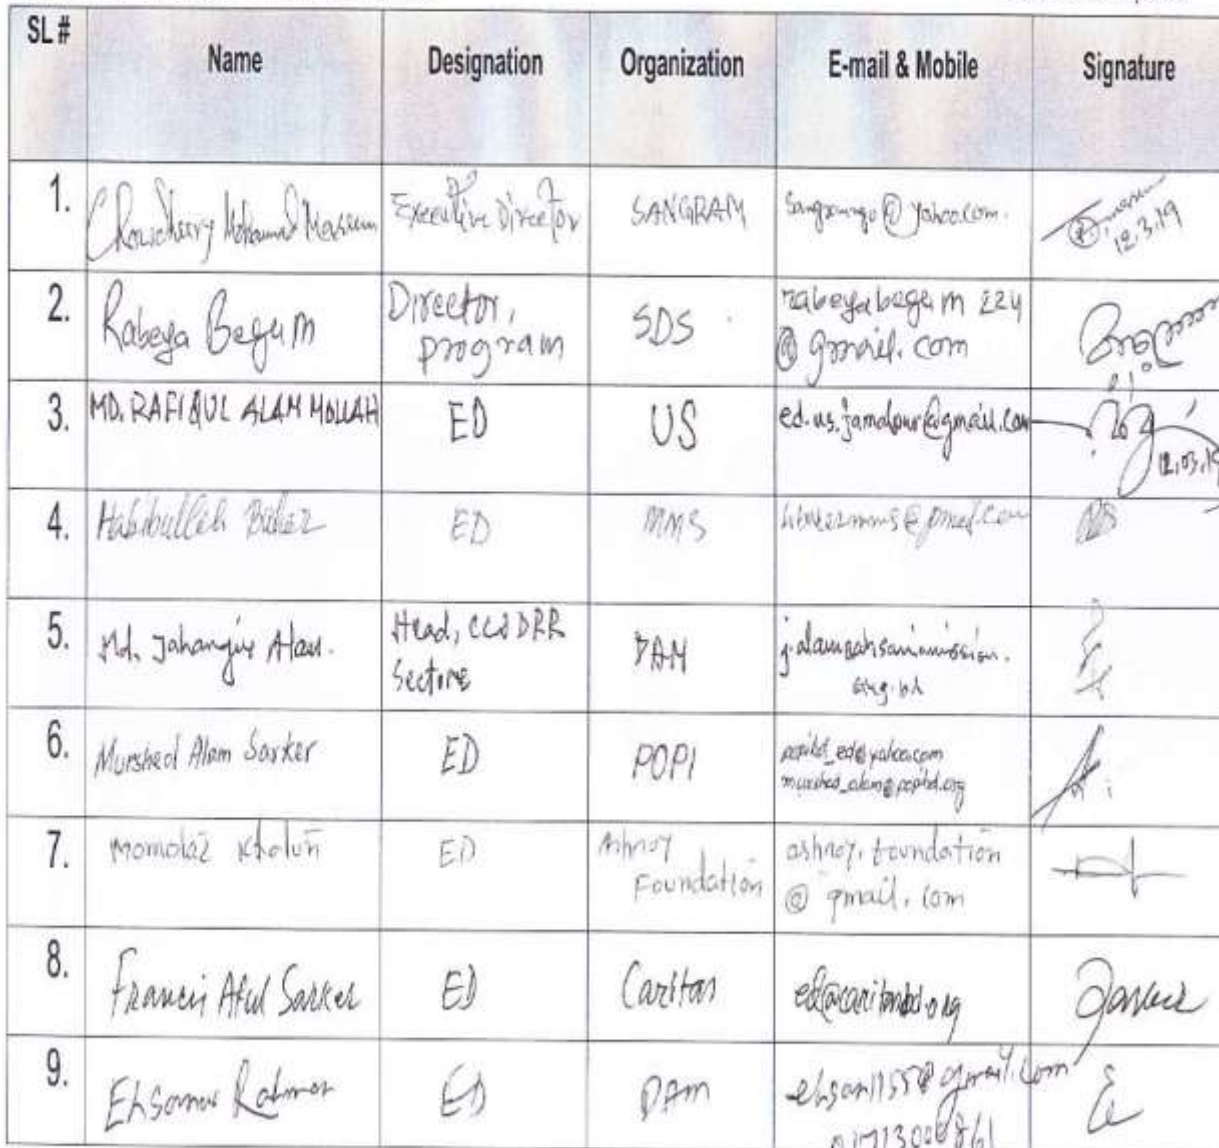 SL # Name Designation Organization E-mail & Mobile Signature
1. Chowdhury Mohammad Masum Executive Director SANGRAM @yahoo.com. 12.3.19
2. Rabeya Begum Director, program SDS rabeyabegum224 @gmail.com
3. MD. RAFIQUL ALAM MOLLAH ED US ed.us.jamalpur@gmail.com 12.03.19
4. Habibullah Bahar ED MMS
5. Md. Jahangir Alam. Head, CC&DRR Sectors DAM
6. Murshed Alam Sarker ED POPI popibd_ed@yahoo.com murshed_alam@popibd.org
7. Momotaz Khatun ED Ashroy Foundation ashroy.foundation @gmail.com
8. Francis Atul Sarker ED Caritas ed@caritasbd.org
9. Ehsanur Rahman ED DAM ehsan1155@gmail.com